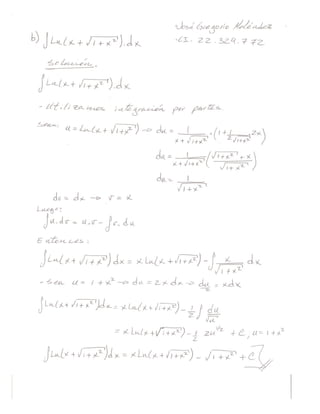 José Gregorio Meléndez
b) ∫Ln(x + √(1+x²)).dx
CI. 22.324.772
Solución.
∫Ln(x + √(1+x²)).dx
- Utilizamos integración por partes
Sean: u = Ln(x + √(1+x²)) → du = 1/(x+√(1+x²)) · (1 + 1/(2√(1+x²)) 2x)
du = 1/(x+√(1+x²)) ((√(1+x²) + x)/√(1+x²))
du = 1/√(1+x²)
dv = dx → v = x
Luego:
∫u.dv = u.v - ∫v.du
Entonces:
∫Ln(x + √(1+x²))dx = x Ln(x + √(1+x²)) - ∫ x/√(1+x²) dx
- Sea u = 1 + x² → du = 2x dx → du/2 = xdx
∫Ln(x + √(1+x²))dx = x Ln(x + √(1+x²)) - 1/2 ∫ du/√u
= x Ln(x + √(1+x²)) - 1/2 2u^(1/2) + C, u = 1 + x²
∫Ln(x + √(1+x²))dx = x Ln(x + √(1+x²)) - √(1+x²) + C